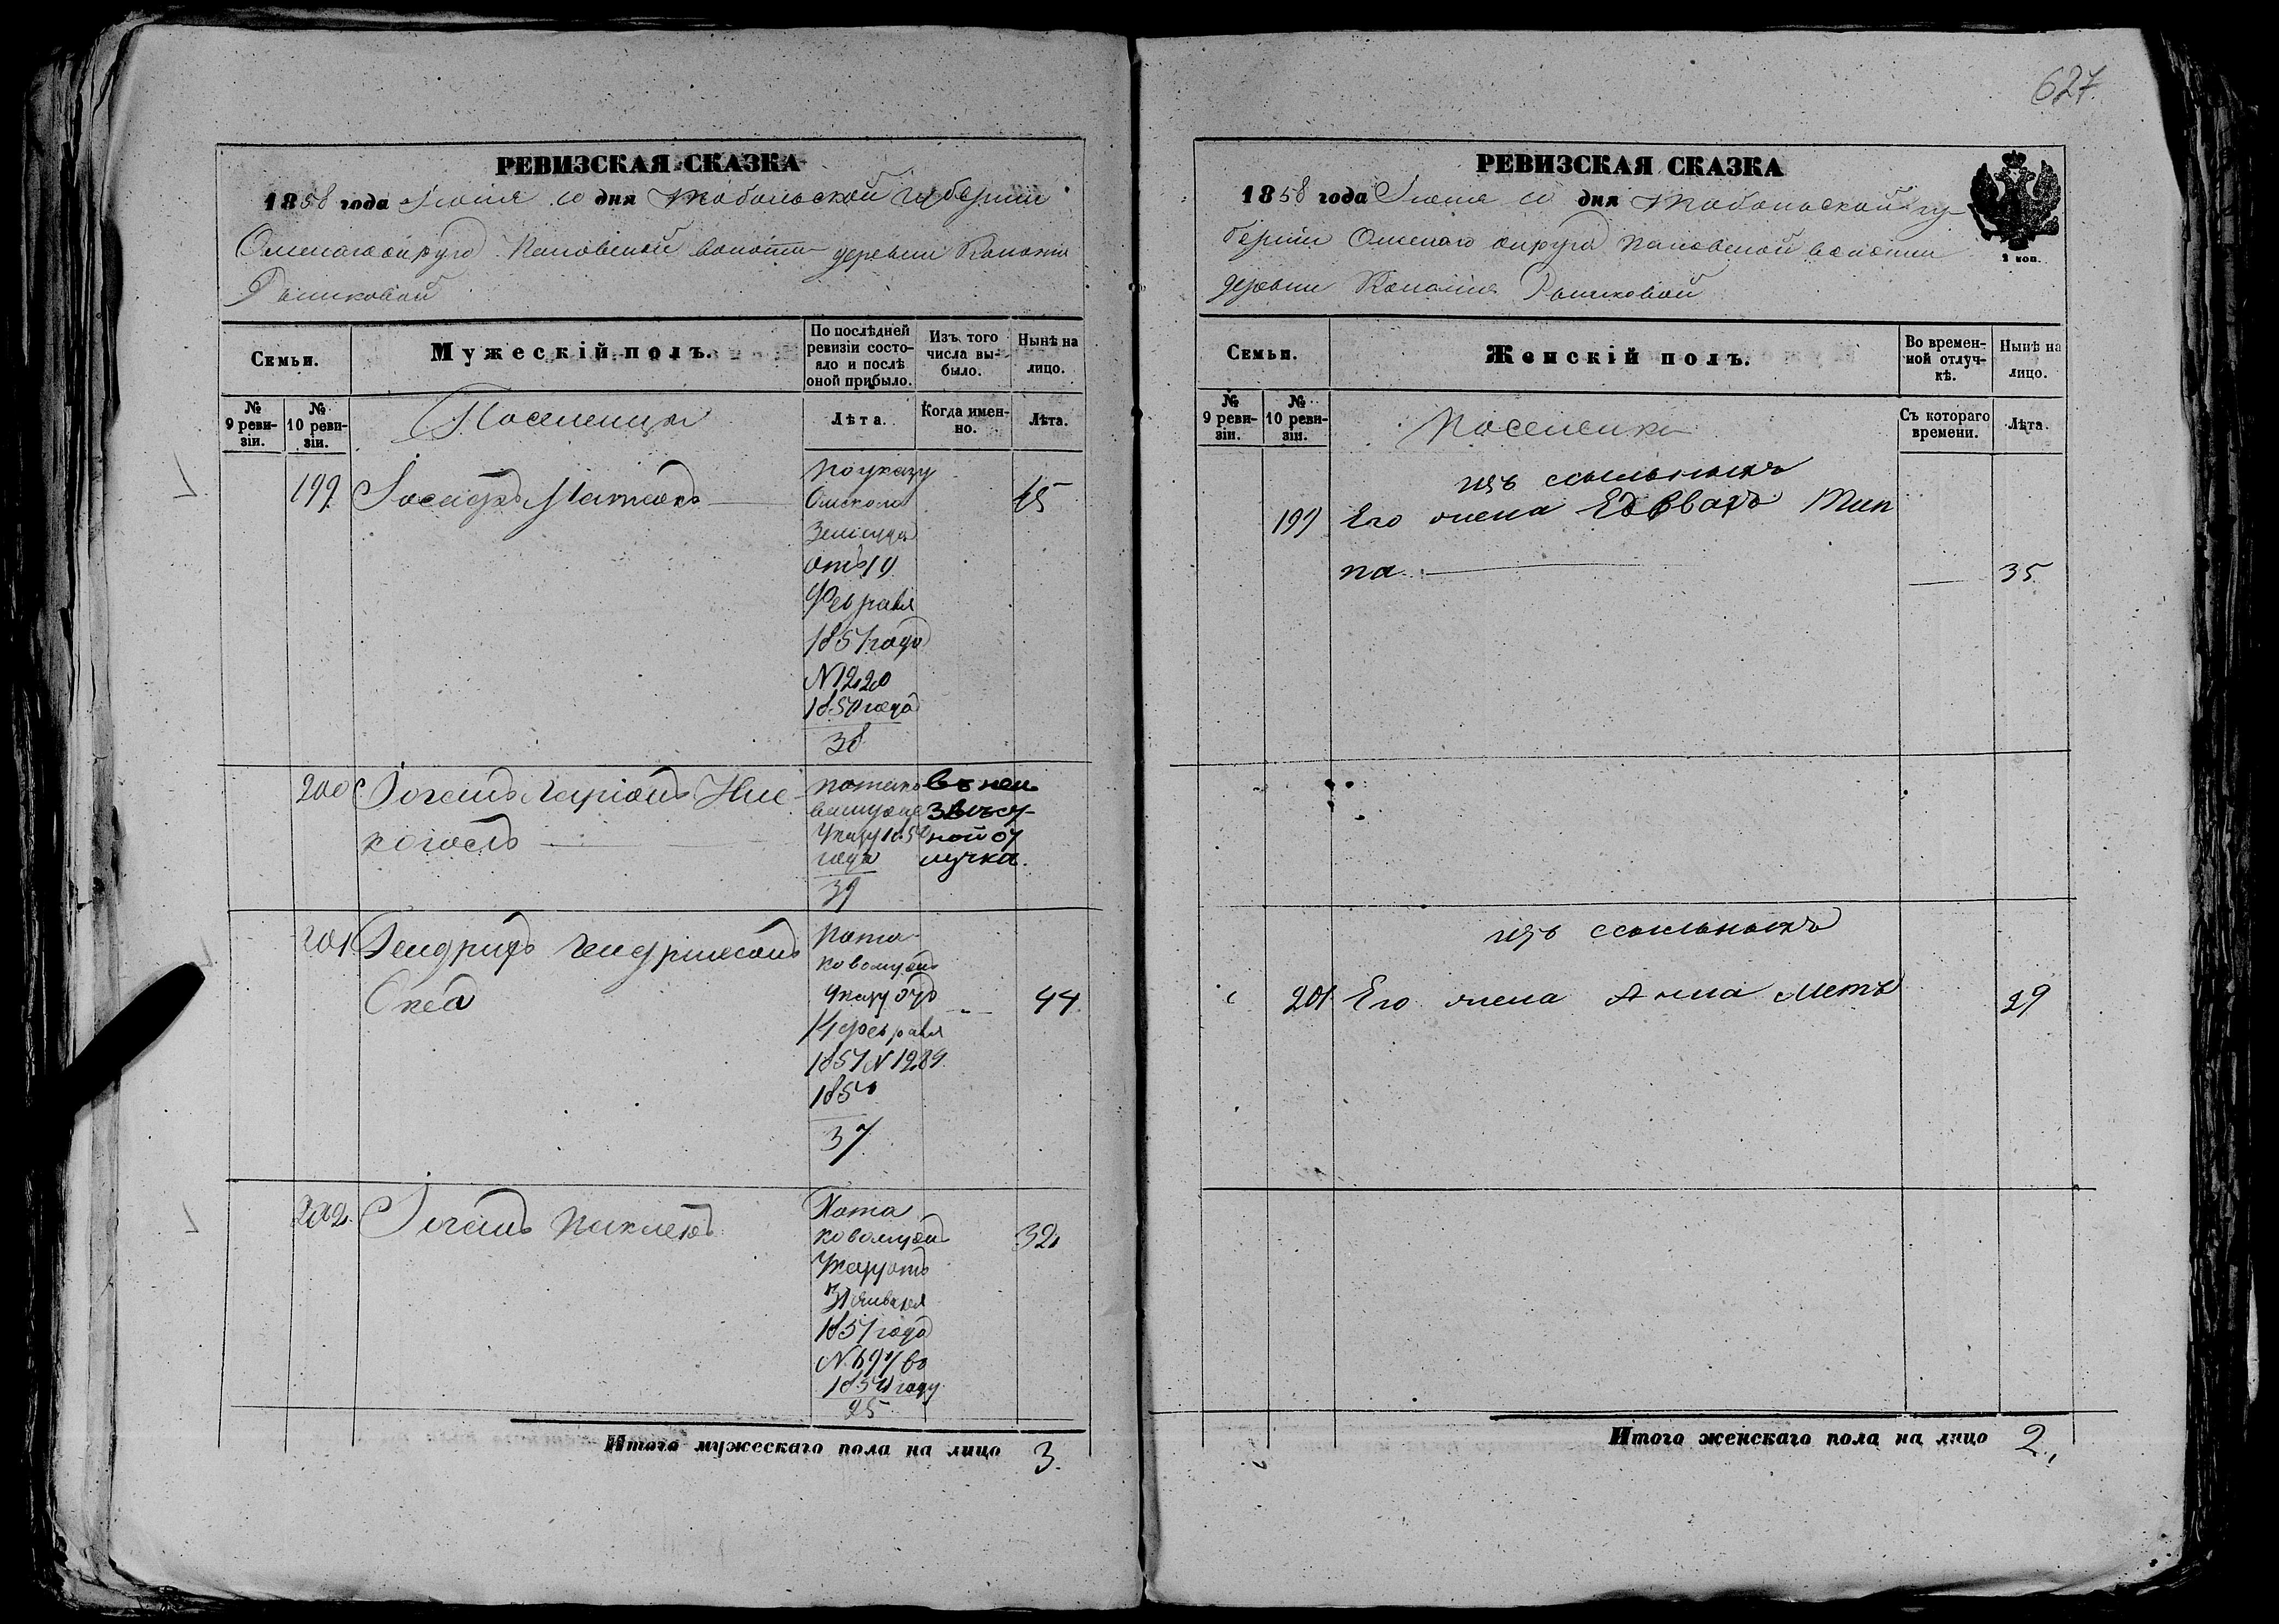 РЕВИЗСКАЯ СКАЗКА
1858 года Іюня 10 дня Тобольской губерніи
Омскаго округа Пановской волости деревни Колонія
Рыжковой
Семьи.
Мужескій полъ.
По послѣдней ревизіи состояло и послѣ оной прибыло.
Изъ того числа выбыло.
Нынѣ на лицо.
№ 9 ревизіи.
№ 10 ревизіи.
Поселенцы
Лѣта.
Когда именно.
Лѣта.
199
По указу
Омскаго
Земсуда
отъ 19
Февраля
1851 года
N 1220
1850 года
38
45
200
въ неи
звѣст
ной от
лучка.
Указу 1850
года
39
201
Гендрихъ Гендриксонъ
пота
ковомуже
Указу отъ
14 февраля
1851 N 1289
1850
37
44
202
Пота
ковомуже
Указу отъ
31 января
1851 года
N. 697 въ
1850 году
25
32
Итого мужескаго пола на лицо 3.
627
РЕВИЗСКАЯ СКАЗКА
1858 года Іюня 10 дня Тобольской гу-
берніи Омскаго округа Пановской волости
деревни Колонія Рыжковой
2 коп.
Семьи.
Женскій полъ.
Во временной отлучкѣ.
Нынѣ на лицо.
№ 9 ревизіи.
№ 10 ревизіи.
Поселенки
Съ котораго времени.
Лѣта.
изъ ссыльныхъ
199 Его жена
па
35
изъ ссыльныхъ
201 Его жена Анна Метъ
29
Итого женскаго пола на лицо 2.